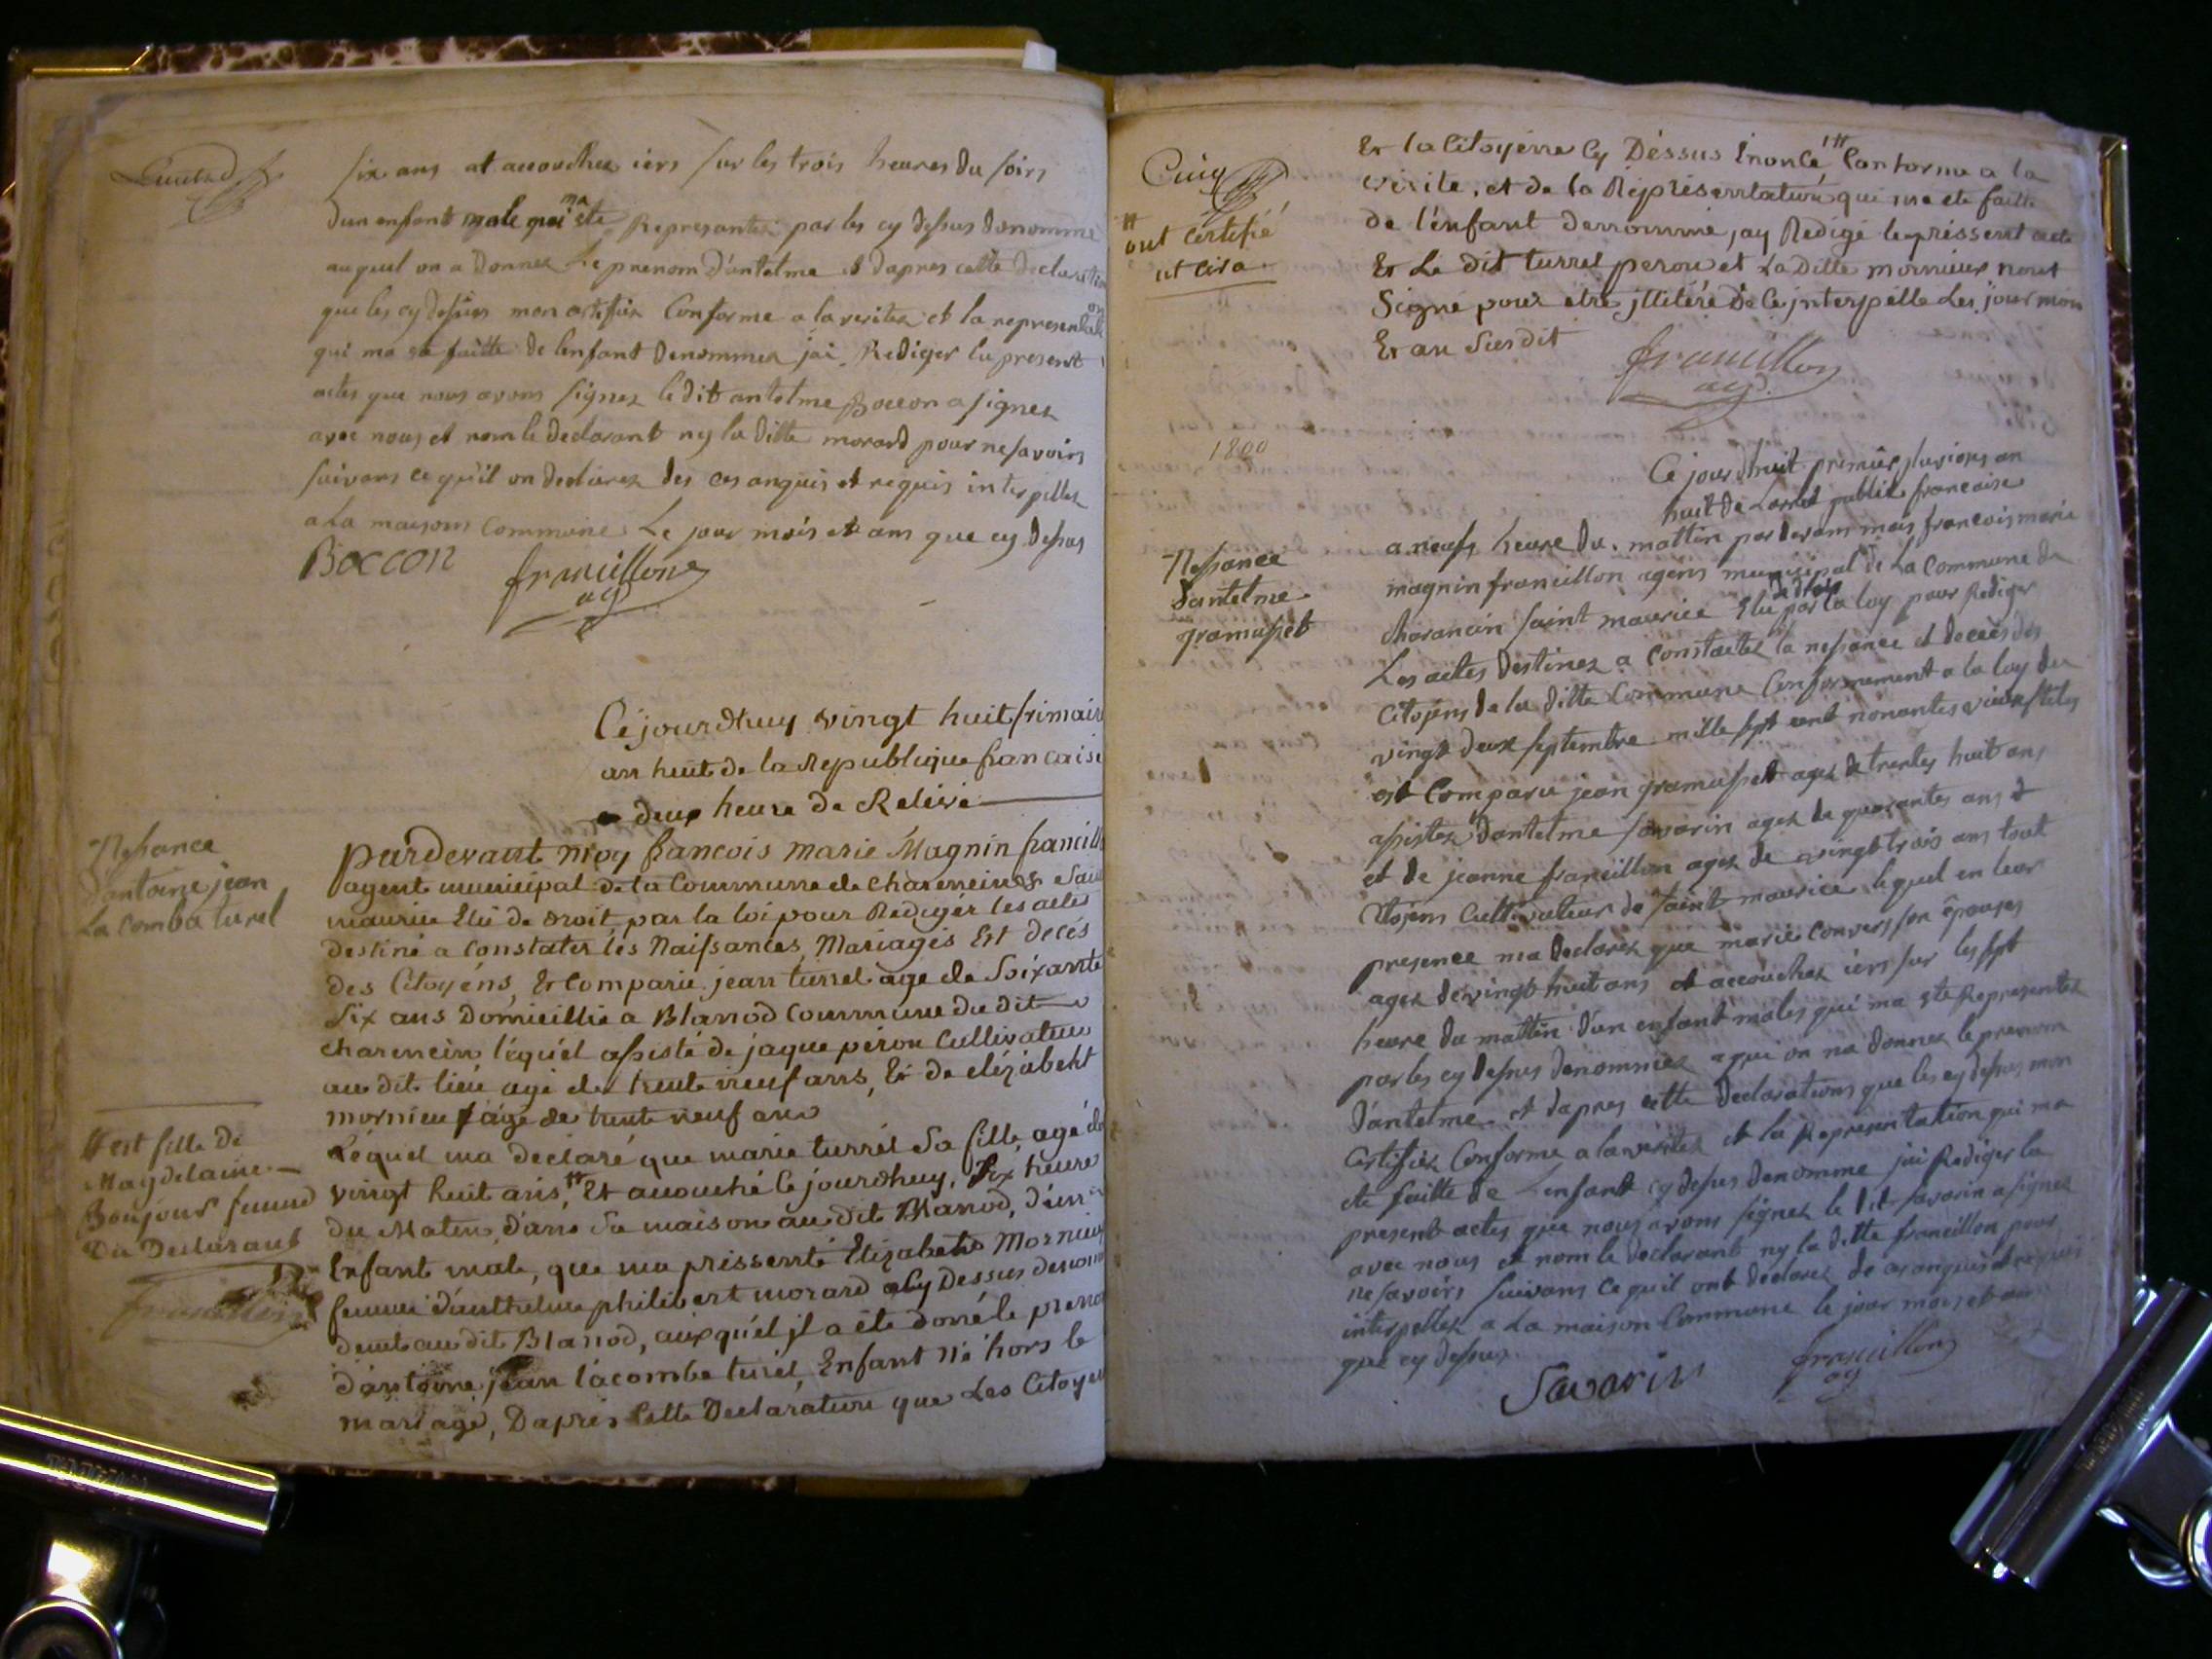 six ans at accouchez iers sur les trois heures du soirs
dun enfant male qui ma ete Represante par les cy dessus denomme
auquel on a donnez Le prenom d'antelme & dapres cette declaration
que les cy dessus mon certifier Conforme a la veritez et la representation
qui ma ete faitte de lenfant denommez jai Rediger lu present
actes que nous avons signez le dit antelme Boccon a signez
avec nous et nom le declarant ny la ditte morard pour ne savoirs
suivans ce qu'il on declarez des ces anquis et requis interpellez
a La maisons Commune Le jour mois et ans que cy dessus
Boccon
francillon
ag
Cejourdhuy vingt huit frimaire
an huit de la Republique francaise
a deux heure de Relevé
Nessance
d'antoine jean
La comba turel
pardevant moy francois marie Magnin francill
agent municipal de la Commune de charencin & Sain
maurice Elu de droit par la loi pour Redigér les actes
destiné a constater lés Naissances, Mariagés Est decés
des Citoyéns, Et Comparu jean turrel agé de Soixante
Six ans Domicillié a Blanod Commune du dit
charencin léquél assisté de jaque pérou Cullivateur
au dit lieu agé de trente neuf ans, Et de elizabeht
mornieu f agé de trente neuf ans
Léquel ma declaré que marie turrél Sa fille agé de
vingt huit ans, # Et acouché Cejourdhuy, Six heure
du Matin, d'ans Sa maison au dit Blanod, d'un
Enfant male, que ma prissenté Elizabeht Mornieu
femme d'anthelme philibert morard Cy Dessus denom
deurt au dit Blanod, auxquél jl a été donné le preno
d'antoine jean lácombe turél, Enfant né hors le
mariagé, Daprés Cette Declaration que Les Citoyen
# est fille de
Magdelaine
Bonjour femme
Du Declarant
francillon
Cinq
# ont certifié
ut cira
Et la Citoyenne Cy Déssus Enoncé # Conforme a la
vérité, et de la Réprésentation qui ma eté faitte
de l'énfant denommé, jay Redigé le prissent acte
Et Le dit turrel perou et La ditte mornieux nont
Signé pour etre jlliteré de ce jnterpellé Les jour mois
Et an Susdit
francillon
ag
1800
Ce jourdhuit premier pluvions an
huit de La republik francoise
a neufs heure du mattin par devans mois francois marie
magnin francillon agens municipal de La Commune de
charancin saint maurice Elu de drois par la loy pour Rediger
Les actes destinez a constactez la nessance et deces des
Citoyens de la ditte Commune Conformement a la loy du
vingt deux septembre mille sept cent nonantes vieux stiles
est Comparu jean gramusset agez de trentes huit ans
assistez d'antelme savarin agez de quarantes ans &
et de jeanne francillon agez de vingt trois ans tout
Citoyens Cultivateur de saint maurice lequel en leur
presence ma declarez que marie Convers son épouses
agez de vingt huit ans et accouchez iers sur les sept
heure du mattin d'un enfant males qui ma ete Representez
par les cy dessus denommez a qui on na donnez le prenom
d'antelme et dapres cette declarations que les cy dessus mon
Certifiéz Conforme a la veritez et la Representation qui ma
ete faitte de Lenfant cy desus denomme jai Rediger la
present actes que nous avons signez le dit savarin a signez
avec nous et nom le declarant ny la ditte francillon pour
ne savoirs suivans ce quil ont declarez de ces anquis et requis
interpellez a La maison Commune le jour mois et an
que cy dessus
Nessance
d'antelme
gramusset
Savarin
francillon
ag